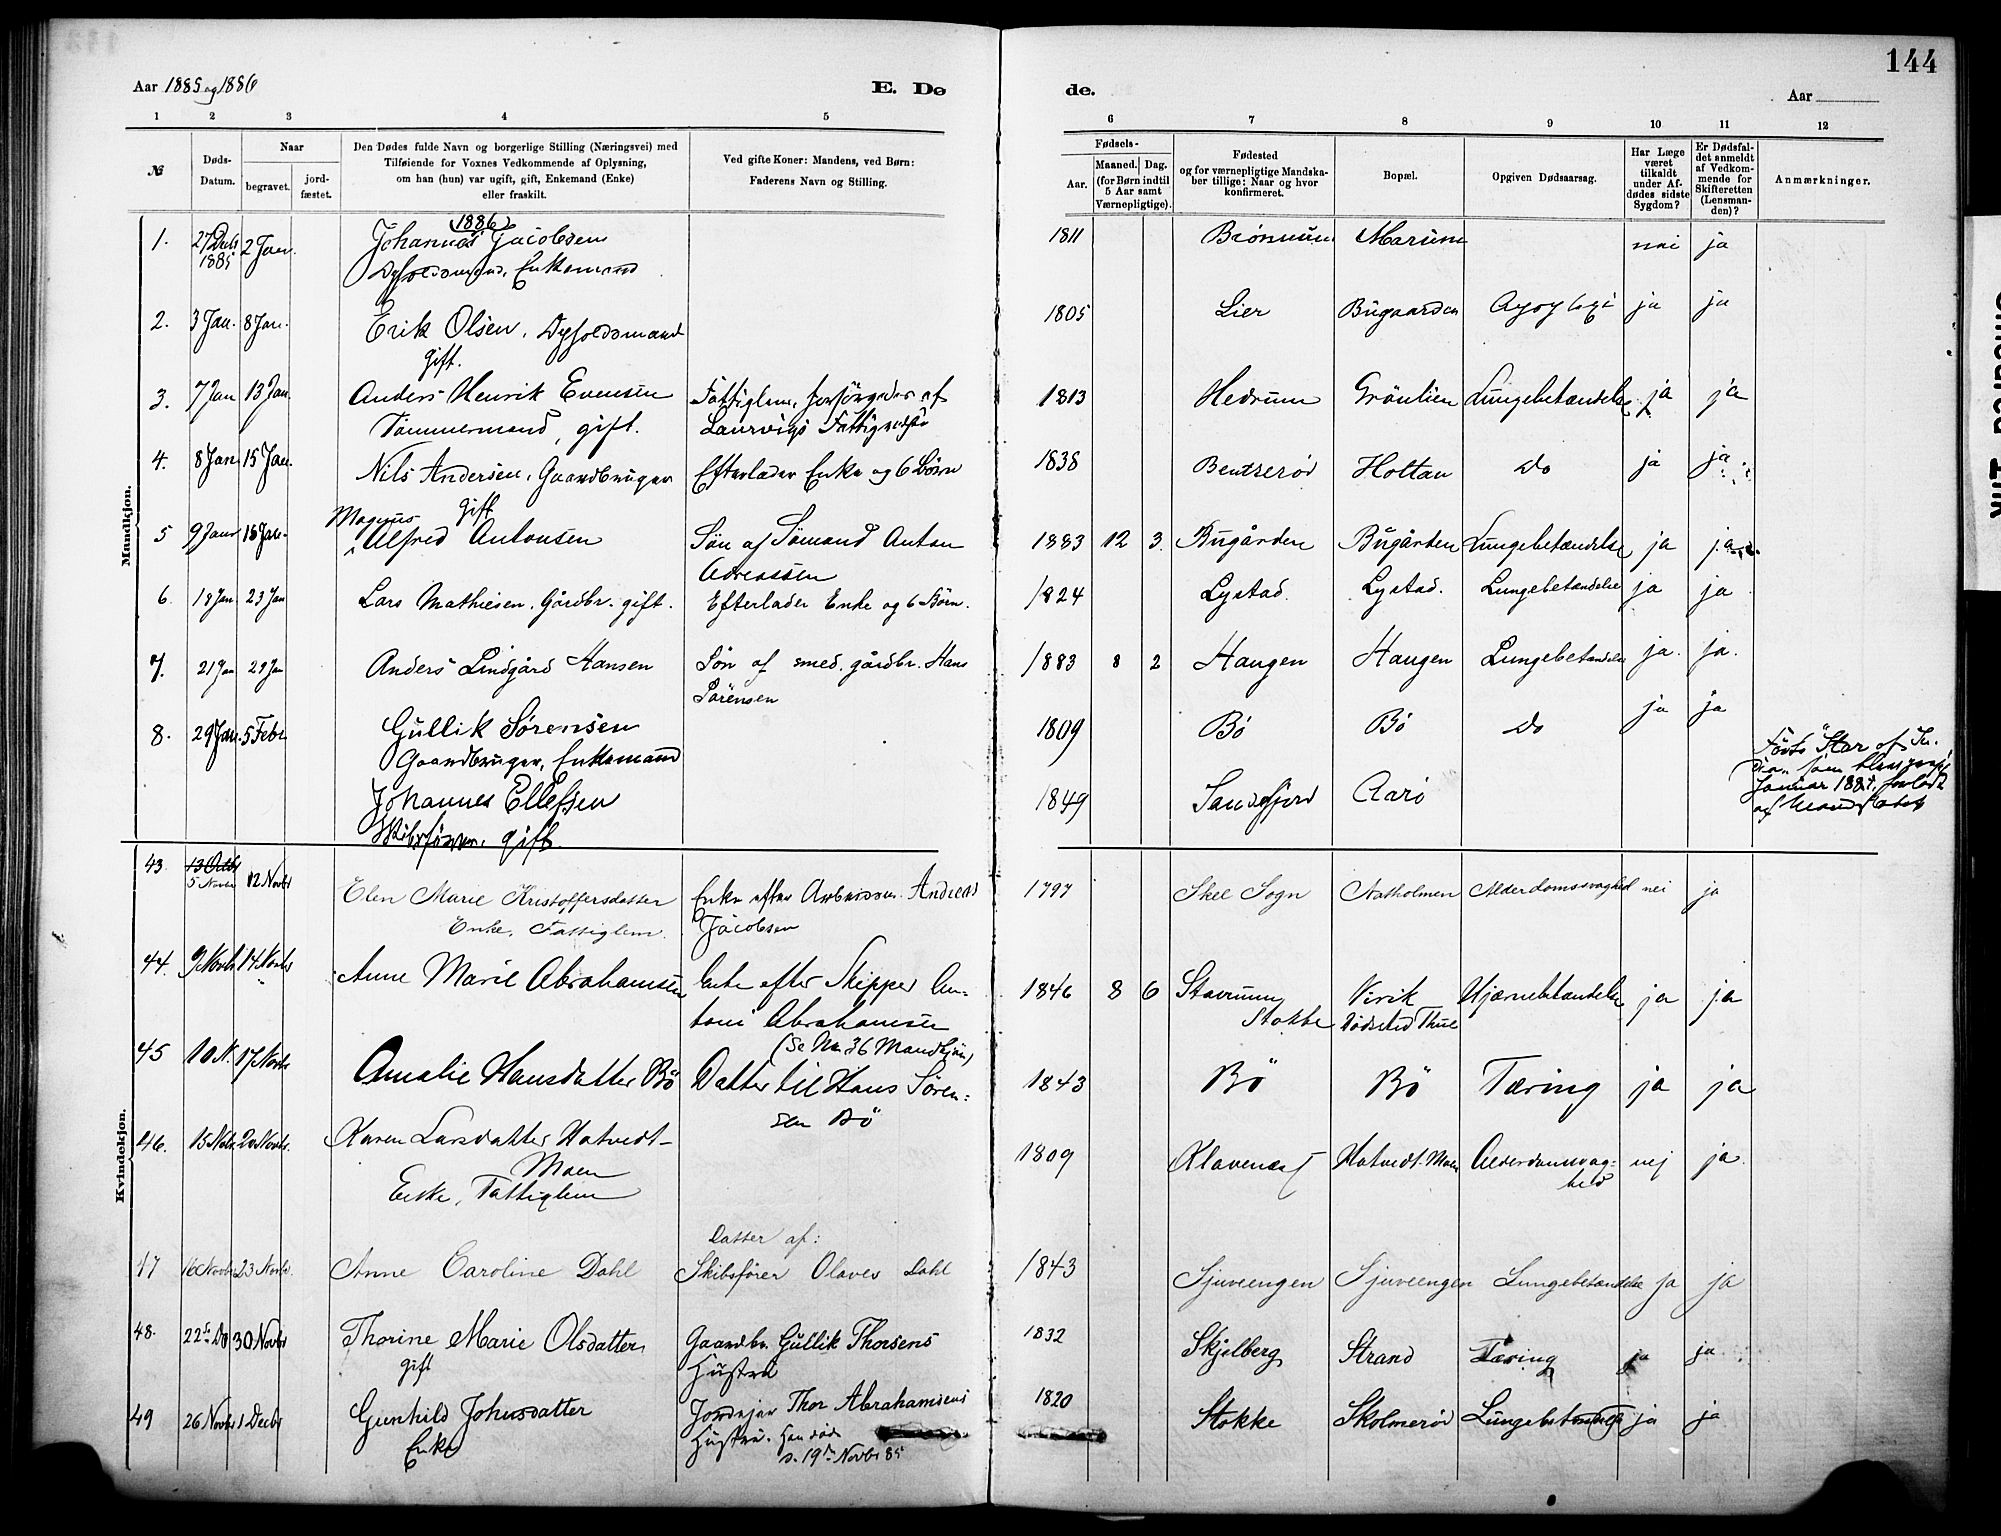 144
Aar 1885 og 1886
E. Dø
de.
Aar
1 2 3 4 5 6 7 8 9 10 11 12
№
Døds-
Datum.
Naar
begravet.
jord-
fæstet.
Den Dødes fulde Navn og borgerlige Stilling (Næringsvei) med
Tilføiende for Voxnes Vedkommende af Oplysning,
om han (hun) var ugift, gift, Enkemand (Enke)
eller fraskilt.
Ved gifte Koner: Mandens, ved Børn:
Faderens Navn og Stilling.
Fødsels-
Aar.
Maaned. Dag.
(for Børn indtil
5 Aar samt
Værnepligtige).
Fødested
og for værnepligtige Mandska-
ber tillige: Naar og hvor
konfirmeret.
Bopæl.
Opgiven Dødsaarsag.
Har Læge
været
tilkaldt
under Af-
dødes sidste
Sygdom?
Er Dødsfal-
det anmeldt
af Vedkom-
mende for
Skifteretten
(Lensman-
den)?
Anmærkninger.
Mandkjøn.
1886
1. 27 Decb 2 Jan. Johannes Jacobsen 1811 Marum nei ja
1885 Enkemand
2. 3 Jan. 8 Jan. Erik Olsen, 1805 Lier Bugaarden ja ja
gift.
3. 7 Jan 13 Jan. Anders Henrik Evensen Fattiglem, forsørgedes af 1813 Hedrum Grønlien Lungebetændelse ja ja
Tømmermand, gift. Laurvigs
4. 8 Jan 15 Jan. Nils Andersen, Gaardbruger Efterlader Enke og 6 Børn 1838 Bentserød Holtan Do ja ja
gift
Magnus
5 9 Janr 16 Jan. Alfred Antonsen Søn af Sømand Anton 1883 12 3. Bugården Bugården Lungebetændelse ja ja
Andreassen
6. 18 Jan 23 Jan Lars Mathiesen. Gårdbr. gift. Efterlader Enke og 6 Børn. 1824 Lystad. Lystad. Lungebetændelse ja ja
7. 21 Jan 29 Jan Anders Lindgård Hansen Søn af smed. gårdbr. Hans 1883 8 2 Haugen Haugen Lungebetændelse ja. ja.
Sørensen
8. 29 Jan. 5 Febr Gullik Sørensen 1809 Bø Bø Do ja ja
Gaardbruger, Enkemand
Johannes Ellefsen 1849 Sandefjord Aarø
Skibsfører, gift.
Januar 1884, forladt
Kvindekjøn.
43. 13 Octb
5 Novbr 12 Novbr Elen Marie Kristoffersdatter Enke efter Andreas 1797 Skee Sogn Natholmen Alderdomssvaghed nei ja
Enke, Fattiglem. Jacobsen
44. 9 Novb 14 Novbr Anne Marie Abrahamsen Enke efter Skipper An- 1846 8 6 Stavrum Virik Hjærnebetændelse ja ja
toni Abrahamsen Stokke Dødsted Thue
(Se No 36 Mandkjøn)
45 10 N. 17 Novb Amalie Hansdatter Bø Datter til Hans Søren- 1843 Bø Bø Tæring ja ja
sen Bø
46. 15 Nov 20 Novbr. Karen Larsdatter Hotvedt- 1809 Klavenæs Hotvedt. Moen Alderdomssvag- nej ja.
Moen hed
Enke, Fattiglem
Datter af:
47 16 Novb 23 Novbr. Anne Caroline Dahl Skibsfører Olaves Dahl 1843 Sjuveengen Sjuveengen Lungebetændelse ja ja
48. 22de Do 30 Novbr Thorine Marie Olsdatter Gaardbr. Gullik Thorsens 1832 Skjelberg Strand Tæring ja ja
gift Hustru
49 26 Novbr 1 Decbr Gunhild Johnsdatter Jordejer Thor Abrahamsens 1820 Stokke Skolmerød Lungebetændelse ja ja
Enke Hustru. Han døde
d. 19de Novbr 85